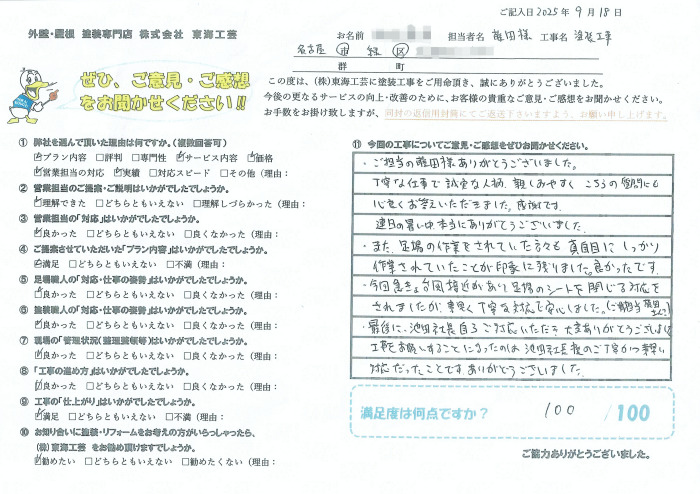 ご記入日 2025年 9月18日
外壁・屋根 塗装専門店 株式会社 東海工芸
お名前 担当者名 様 工事名 塗装工事
名古屋 市 緑 区
郡 町
ぜひ、ご意見・ご感想
をお聞かせください!!
この度は、(株)東海工芸に塗装工事をご用命頂き、誠にありがとうございました。
今後の更なるサービスの向上・改善のために、お客様の貴重なご意見・ご感想をお聞かせください。
お手数をお掛け致しますが、同封の返信用封筒にてご返送下さいますよう、お願い申し上げます。
① 弊社を選んで頂いた理由は何ですか。(複数回答可)
☑プラン内容 □評判 □専門性 ☑サービス内容 ☑価格
☑営業担当の対応 ☑実績 □対応スピード □その他(理由:
② 営業担当のご提案・ご説明はいかがでしたでしょうか。
☑理解できた □どちらともいえない □理解しづらかった(理由:
③ 営業担当の「対応」はいかがでしたでしょうか。
☑良かった □どちらともいえない □良くなかった(理由:
④ ご提案させていただいた「プラン内容」はいかがでしたでしょうか。
☑満足 □どちらともいえない □不満(理由:
⑤ 足場職人の「対応・仕事の姿勢」はいかがでしたでしょうか。
☑良かった □どちらともいえない □良くなかった(理由:
⑥ 塗装職人の「対応・仕事の姿勢」はいかがでしたでしょうか。
☑良かった □どちらともいえない □良くなかった(理由:
⑦ 現場の「管理状況(整理整頓等)」はいかがでしたでしょうか。
☑良かった □どちらともいえない □良くなかった(理由:
⑧ 「工事の進め方」はいかがでしたでしょうか。
☑良かった □どちらともいえない □良くなかった(理由:
⑨ 工事の「仕上がり」はいかがでしたでしょうか。
☑満足 □どちらともいえない □不満(理由:
⑩ お知り合いに塗装・リフォームをお考えの方がいらっしゃったら、
(株)東海工芸 をお勧め頂けますでしょうか。
☑勧めたい □どちらともいえない □勧めたくない(理由:
⑪ 今回の工事についてご意見・ご感想をぜひお聞かせください。
・ご担当の 様ありがとうございました。
丁寧な仕事で誠実な人柄、親しみやすく こちらの質問にも
心良くお答えいただきました。感謝です。
連日の暑い中本当にありがとうございました。
・また、足場の作業をされていた方々も真面目にしっかり
作業されていたことが印象に残りました。良かったです。
・今回急きょ台風接近があり足場のシートを閉じる対応を
されましたが、素早く丁寧な対応で安心しました。
・最後に、池田社長自らご対応いただき大変ありがとうございました
工事をお願いすることになったのは池田社長様のご丁寧かつ素早い
対応だったことです ありがとうございました。
満足度は何点ですか? 100 /100
ご協力ありがとうございました。